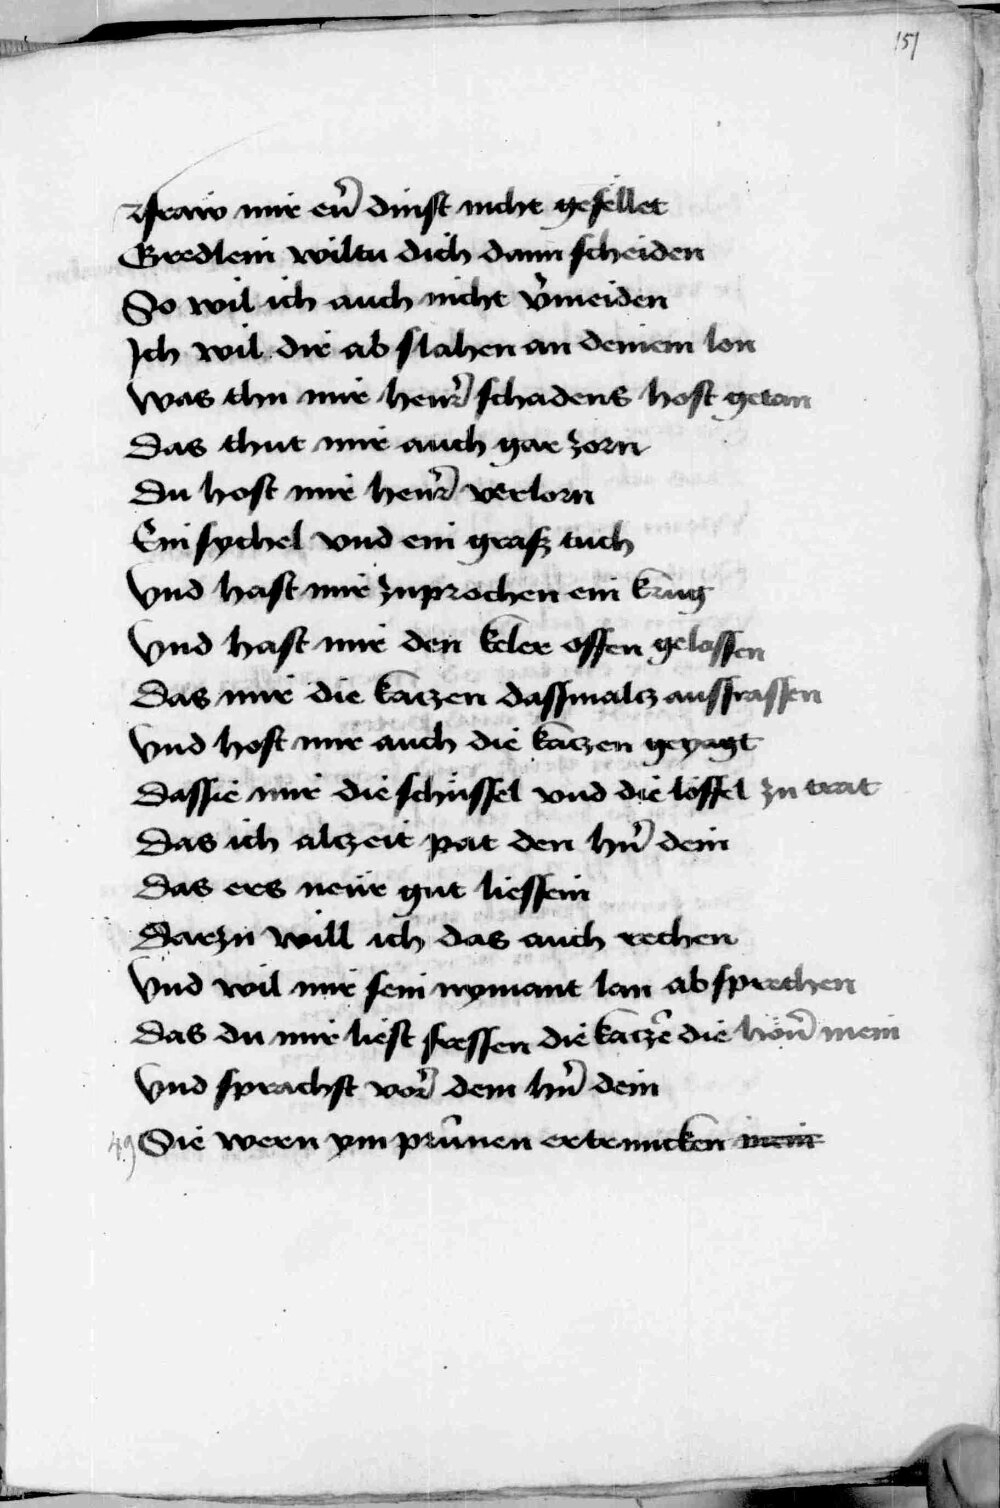 151
Fraw mir eur̄ dinst nicht gefellet
Gredlein wiltu dich dann scheiden
So wil ich auch nicht v̄meiden
Ich wil dir ab slahen an deinem lon
Was thu mir heur̄ schadens host getan
Das thut mir auch gar zorn
Du host mir heur̄ verlorn
Ein sychel vnd ein grasz tuch
Vnd hast mir zuprochen ein krug
Vnd hast mir den keler offen gelassen
Das mir die katzen dassmaltz aussfrassen
Vnd host mir auch die katzen geyagt
Dassie mir die schüssel vnd die löffel zu trat
Das ich alzeit pat den hn̄ dein
Das ers neür gut liessein
Darzu will ich das auch rechen
Vnd wil mir sein nymant lan ab sprechen
Das du mir liest fressen die katzē die hön̄ mein
Vnd sprachst vor̄ dem hn̄ dein
49 Sie wern ym prünen ertruncken mein